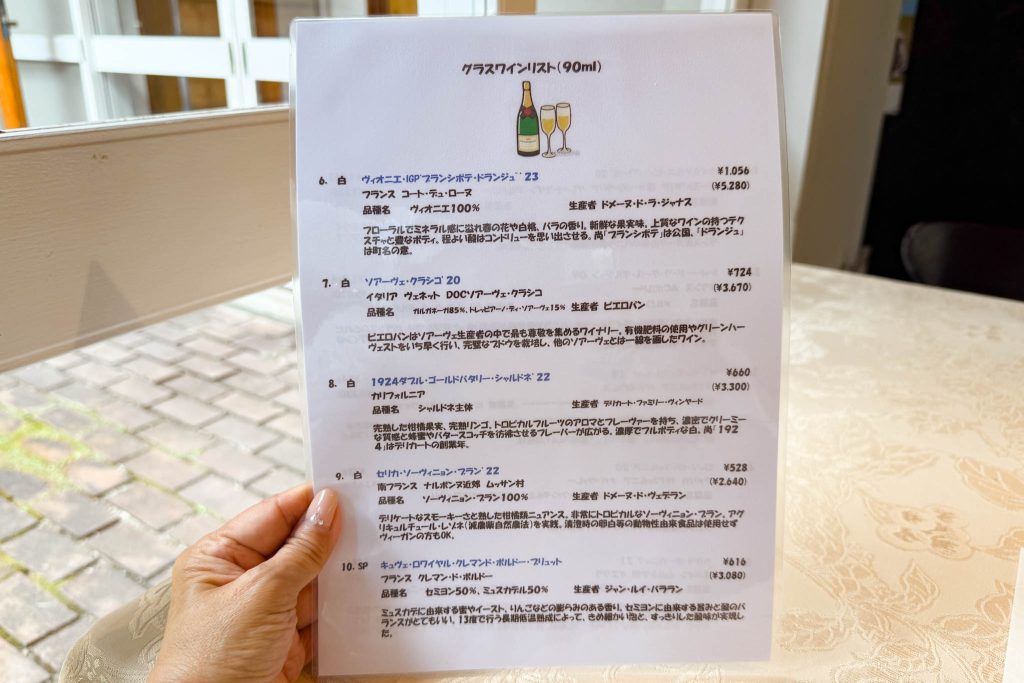 グラスワインリスト(90ml)
6. 白 ヴィオニエ・IGP"ブランシポテ・ドランジュ" '23 ¥1.056
フランス コート・デュ・ローヌ (¥5.280)
品種名 ヴィオニエ100% 生産者 ドメーヌ・ド・ラ・ジャナス
フローラルでミネラル感に溢れ春の花や白桃、バラの香り。新鮮な果実味。上質なワインの持つテク
スチャと豊なボディ。程よい酸はコンドリューを思い出させる。尚「ブランシポテ」は公園、「ドランジュ」
は町名の意。
7. 白 ソアーヴェ・クラシコ'20 ¥724
イタリア ヴェネット DOCソアーヴェ・クラシコ (¥3.670)
品種名 ガルガネーガ85%、トレッビアーノ・ディ・ソアーヴェ15% 生産者 ピエロパン
ピエロパンはソアーヴェ生産者の中で最も尊敬を集めるワイナリー。有機肥料の使用やグリーンハー
ヴェストをいち早く行い、完璧なブドウを栽培し、他のソアーヴェとは一線を画したワイン。
8. 白 1924ダブル・ゴールドバタリー・シャルドネ'22 ¥660
カリフォルニア (¥3.300)
品種名 シャルドネ主体 生産者 デリカート・ファミリー・ヴィンヤード
完熟した柑橘果実、完熟リンゴ、トロピカルフルーツのアロマとフレーヴァーを持ち、濃密でクリーミー
な質感と蜂蜜やバタースコッチを彷彿させるフレーバーが広がる、濃厚でフルボディな白。尚「192
4」はデリカートの創業年。
9. 白 セリカ・ソーヴィニョン・ブラン'22 ¥528
南フランス ナルボンヌ近郊 ムッサン村 (¥2.640)
品種名 ソーヴィニョン・ブラン100% 生産者 ドメーヌ・ド・ヴェデラン
デリケートなスモーキーさと熟した柑橘類ニュアンス。非常にトロピカルなソーヴィニョン・ブラン。アグ
リキュルチュール・レゾネ(減農薬自然農法)を実践。清澄時の卵白等の動物性由来食品は使用せず
ヴィーガンの方もOK。
10. SP キュヴェ・ロワイヤル・クレマンド・ボルドー・ブリュット ¥616
フランス クレマン・ド・ボルドー (¥3.080)
品種名 セミヨン50%、ミュスカデル50% 生産者 ジャン・ルイ・バララン
ミュスカデに由来する蜜やイースト、りんごなどの膨らみのある香り、セミヨンに由来する旨みと酸のバ
ランスがとてもいい。13度で行う長期低温熟成によって、きめ細かい泡と、すっきりした酸味が実現し
た。